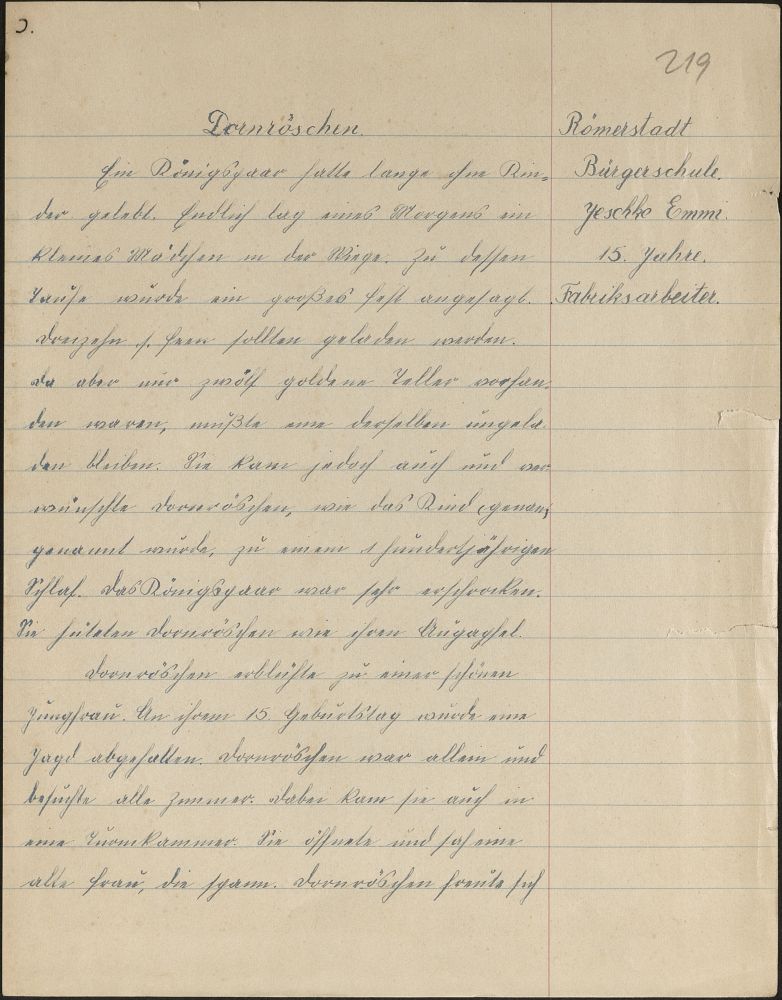 219
Dornröschen.
Römerstadt
Bürgerschule.
Jeschke Emmi.
15. Jahre.
Fabriksarbeiter.
Ein Königspaar hatte lange ohne Kin=
der gelebt. Endlich lag eines Morgens ein
kleines Mädchen in der Wiege. Zu dessen
Taufe wurde ein großes Fest angesagt.
Dreizehn Feen sollten geladen werden.
Da aber nur zwölf goldene Teller vorhan=
den waren, mußte eine derselben ungela=
den bleiben. Sie kam jedoch auch und ver
wünschte Dornröschen, wie das Kind
genannt wurde, zu einem hundertjährigen
Schlaf. Das Königspaar war sehr erschrocken.
Sie hüteten Dornröschen wie ihren Augapfel.
Dornröschen erblühte zu einer schönen
Jungfrau. An ihrem 15. Geburtstag wurde eine
Jagd abgehalten. Dornröschen war allein und
besuchte alle Zimmer. Dabei kam sie auch in
eine Turmkammer. Sie öffnete und sah eine
alte Frau, die spann. Dornröschen freute sich